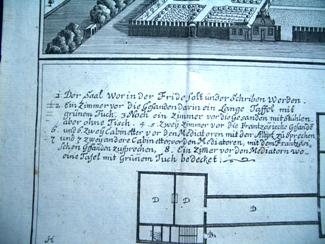 1 Der Saal Wor in der Fride solt under Schriben Werden.
2. ein Zimmer vor die Gesanden darin ein Lange Taffel mit
grünem Tuch, 3 Noch ein Zimmer vor die Gesanden mit Stühlen
aber ohne Tisch. 4. 5. Zweij Zimmer vor die Frantzösische Gesande
6. und 6. Zweij Cabinetter vor den Mediatoren mit der zu sprechen
7 7 zweij andere Cabinette vor den Mediatoren, mit dem Frantzösi-
schen Gesanden zu sprechen, 8. Ein Zimer vor den Mediatorn wo
eine Tafel mit Grünem Tuch bedecket.
D
D
D
H